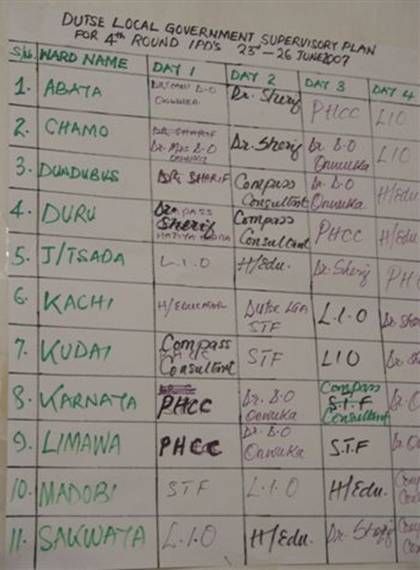 DUTSE LOCAL GOVERNMENT SUPERVISORY PLAN
FOR 4th ROUND IPD'S 23rd - 26 JUNE 2007
S/No. WARD NAME DAY 1 DAY 2 DAY 3 DAY 4
1. ABAYA Dr. Sherif PHCC LIO
2. CHAMO Dr. Mrs B.O Dr. Sherif Dr. B.O Onwuka LIO
3. DUNDUBUS DR. SHARIF Compass Consultant Dr. B.O Onwuka H/Edu
4. DURU Sherif Compass Consultant PHCC H/Edu
5. J/TSADA L.I.O H/Edu. Dr. Sherif PH
6. KACHI H/EDUCATOR DUTSE LGA STF L.I.O Dr. She
7. KUDAI Compass Consultant STF LIO Dr.
8. KARNAYA PHCC Dr. B.O Onwuka Compass S.T.F Consultant Dr.
9. LIMAWA PHCC Dr. B.O Onwuka S.T.F Dr.
10. MADOBI STF L.I.O H/Edu. Com Con
11. SAKWAYA L.I.O H/Edu. Dr. Sherif Com Con